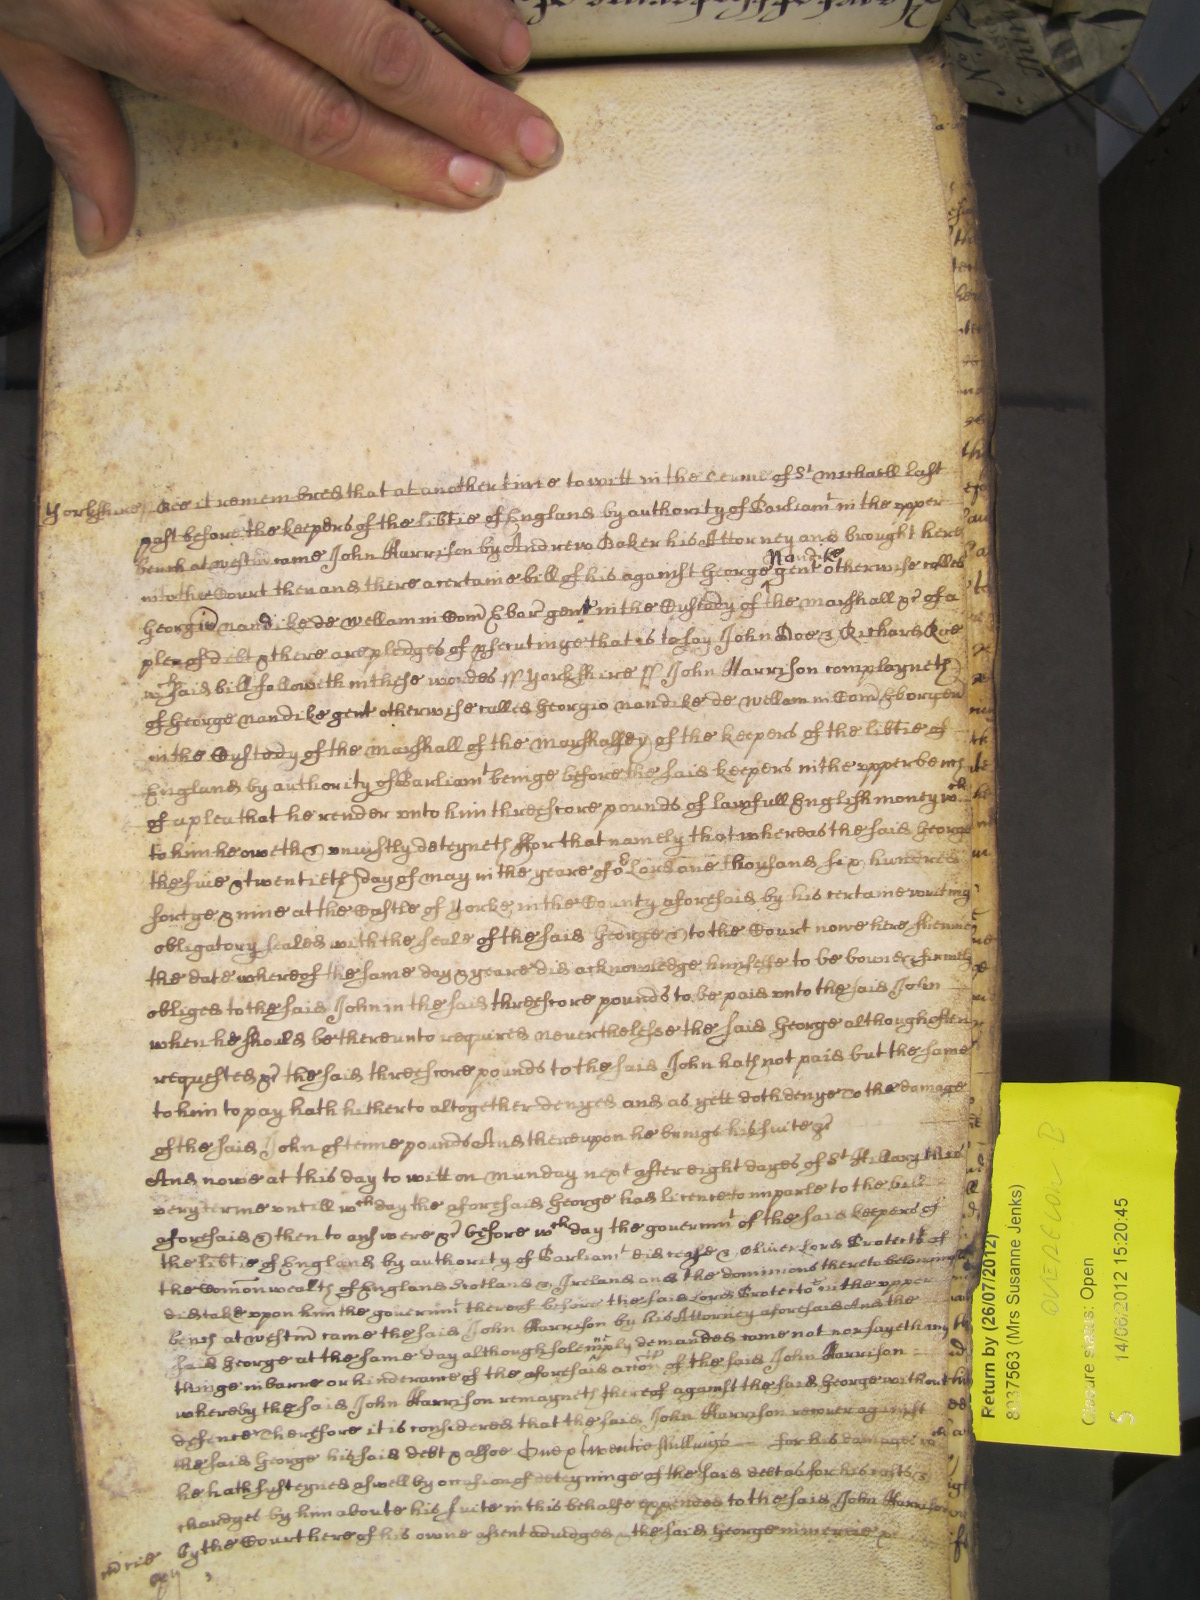 Yorkshire / Bee it remembred that at another time to witt in the terme of St Michaell last
past before the keepers of the libtie of England by authority of Parliamt in the vpper
bench at westm came John Harrison by Andrew Baker his Attorney and brought here
into the Court then and there a certaine bill of his against George Nandike gent otherwise called
Georgio nandike de wellam in Com Ebor gent in the Custody of the Marshall &c of a
plea of debt & there are pledges of psecutinge that is to say John Doe & Richard Roe
wch said bill followeth in these wordes ss Yorkshire ss John Harrison complayneth
of George nandike gent otherwise called Georgio nandike de wellam in Com Ebor gen
in the Custody of the Marshall of the Marshalsey of the keepers of the libtie of
England by authority of Parliamt beinge before the said keepers in the vpper bench
of a plea that he render vnto him threescore pounds of lawfull English money wch
to him he oweth & vniustly deteyneth ffor that namely that whereas the said George
the fiue & twentieth day of may in the yeare of or Lord one thousand six hundred
fortye & nine at the Castle of Yorke in the County aforesaid by his certaine writing
obligatory sealed with the seale of the said George & to the Court nowe here shewne
the date whereof the same day & yeare did acknowledge himselfe to be bound & firmely
obliged to the said John in the said threescore pounds to be paid vnto the said John
when he should be therevnto required neverthelesse the said George although often
requested &c the said threescore pounds to the said John hath not paid but the same
to him to pay hath hitherto altogether denyed and as yett doth denye to the damage
of the said John of tenne pounds And therevpon he brings his suite &c
And nowe at this day to witt on Munday next after eight dayes of St Hillary this
very terme vntill wch day the aforesaid George had licence to imparle to the bill
aforesaid & then to answere &c before wch day the governmt of the said keepers of
the libtie of England by authority of Parliamt did cease & Oliver Lord Protector of
the Comonwealth of England Scotland & Ireland and the dominions thereto belonginge
did take vpon him the governmt thereof before the said Lord Protector in the vpper
bench at westm came the said John Harrison by his Attorney aforesaid And the
said George at the same day although solempnly demanded came not nor sayeth any
thinge in barre or hinderance of the aforesaid accon of the said John Harrison
whereby the said John Harrison remayneth thereof against the said George without
defence Therefore it is considered that the said John Harrison recover against
the said George his said debt & alsoe One & twentie shillings for his damages wch
he hath susteyned aswell by occasion of deteyninge of the said debt as for his costs &
chardges by him about his suite in this behalfe expended to the said John Harrison
by the Court here of his owne assent adiudged & the said George in mercie &c
Return by (26/07/2012)
(Mrs Susanne Jenks)
Closure status: Open
14/06/2012 15:20:45
S